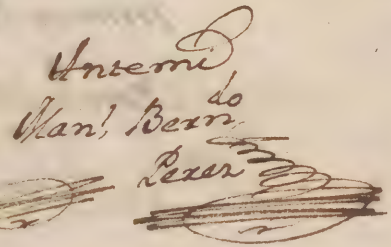 Antemi
Man.l Bern.do
Perez